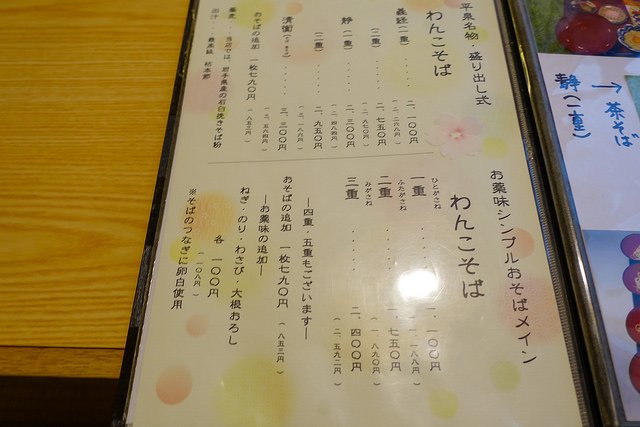 平泉名物・盛り出し式
わんこそば
義経(一重)・・・・・二、一〇〇円
(二、二六八円)
(二重)・・・・・二、七五〇円
(二、九七〇円)
静(一重)・・・・・二、三〇〇円
(二、四八四円)
(二重)・・・・・二、九五〇円
(三、一八六円)
清衡・・・・・三、三〇〇円
(三、五六四円)
おそばの追加 一枚七九〇円
(八五三円)
蕎麦・・当店では、岩手県産の石臼挽きそば粉
出汁・・最高級 枯本節
お薬味シンプルおそばメイン
わんこそば
ひとがさね
一重・・・・・一、一〇〇円
(一、一八八円)
ふたがさね
二重・・・・・一、七五〇円
(一、八九〇円)
みがさね
三重・・・・・二、四〇〇円
(二、五九二円)
―四重・五重もございます―
おそばの追加 一枚七九〇円(八五三円)
―お薬味の追加―
ねぎ・のり・わさび・大根おろし
各 一〇〇円
(一〇八円)
※そばのつなぎに卵白使用
→茶そば
静(二重)